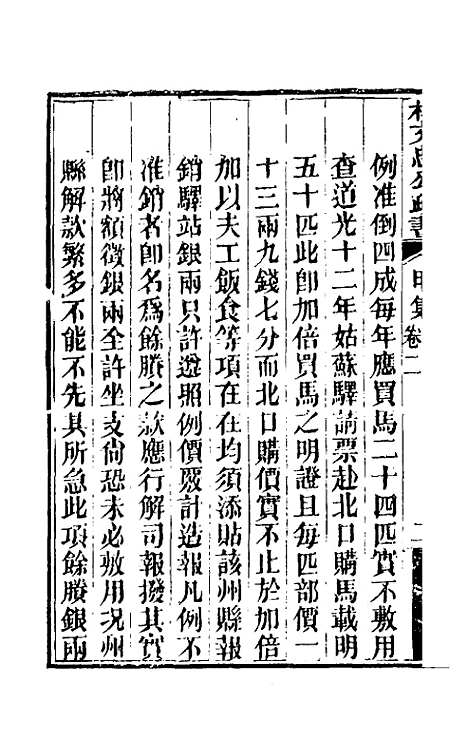 林文忠公政書 甲集卷二 二
例准倒四成每年應買馬二十四匹實不敷用
查道光十二年姑蘇驛請票赴北口購馬載明
五十匹此卽加倍買馬之明證且每匹部價一
十三兩九錢七分而北口購價實不止於加倍
加以夫工飯食等項在在均須添貼該州縣報
銷驛站銀兩只許遵照例價覈計造報凡例不
准銷者卽名爲餘賸之款應行解司報撥其實
卽將額徵銀兩全許坐支尙恐未必敷用况州
縣解款繁多不能不先其所急此項餘賸銀兩